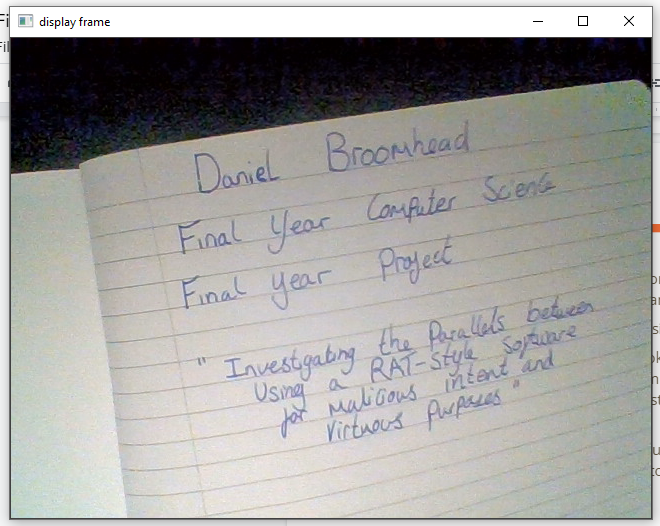 display frame
Daniel Broomhead
Final Year Computer Science
Final year Project
" Investigating the Parallels between
Using a RAT-Style Software
for Malicious intent and
Virtuous Purposes "